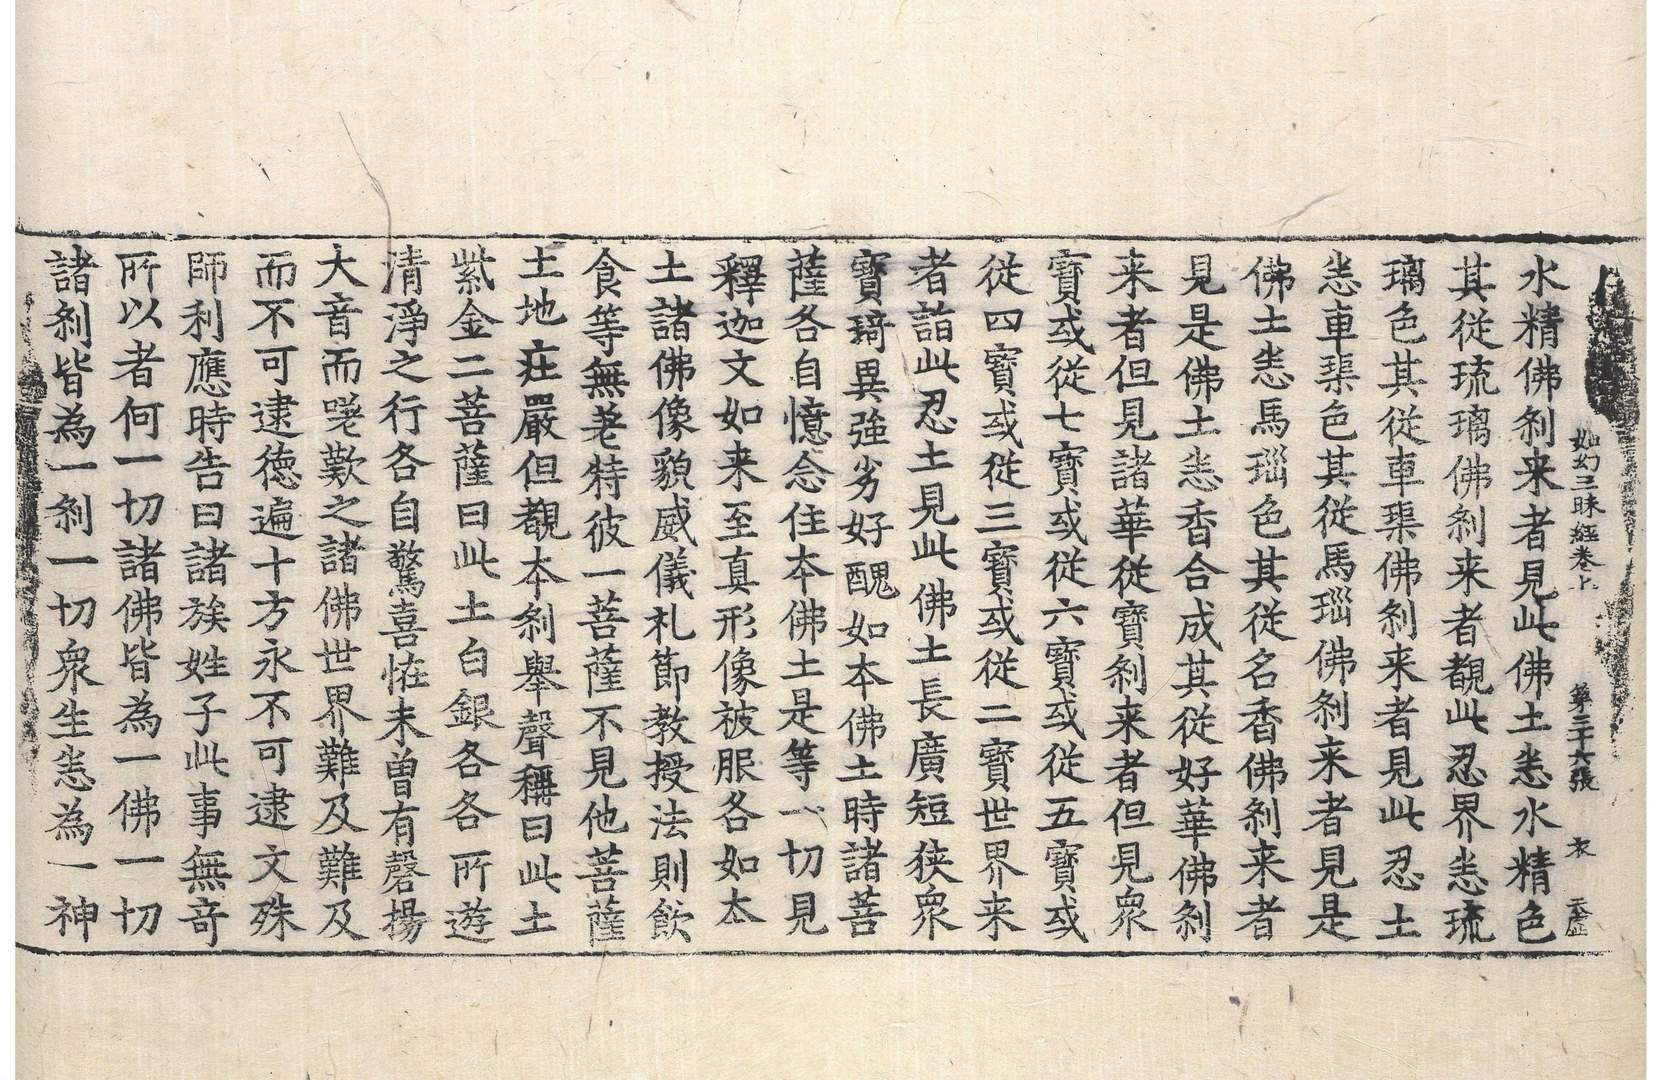 如幻三昧經卷上 第三十六張 衣
水精佛刹来者見此佛土悉水精色
其從琉璃佛刹来者覩此忍界悉琉
璃色其從車璖佛刹来者見此忍土
悉車璖色其從馬瑙佛刹来者見是
佛土悉馬瑙色其從名香佛刹来者
見是佛土悉香合成其從好華佛刹
来者但見諸華從寶刹来者但見衆
寶或從七寶或從六寶或從五寶或
從四寶或從三寶或從二寶世界来
者詣此忍土見此佛土長廣短狹衆
寶琦異強劣好醜如本佛土時諸菩
薩各自憶念住本佛土是等一切見
釋迦文如来至真形像被服各如本
土諸佛像貌威儀礼節教授法則飲
食等無差特彼一菩薩不見他菩薩
土地莊嚴但覩本刹舉聲稱曰此土
紫金二菩薩曰此土白銀各各所遊
清淨之行各自驚喜恠未曽有磬揚
大音而嗟歎之諸佛世界難及難及
而不可逮德遍十方永不可逮文殊
師利應時告曰諸族姓子此事無竒
所以者何一切諸佛皆為一佛一切
諸刹皆為一刹一切衆生悉為一神